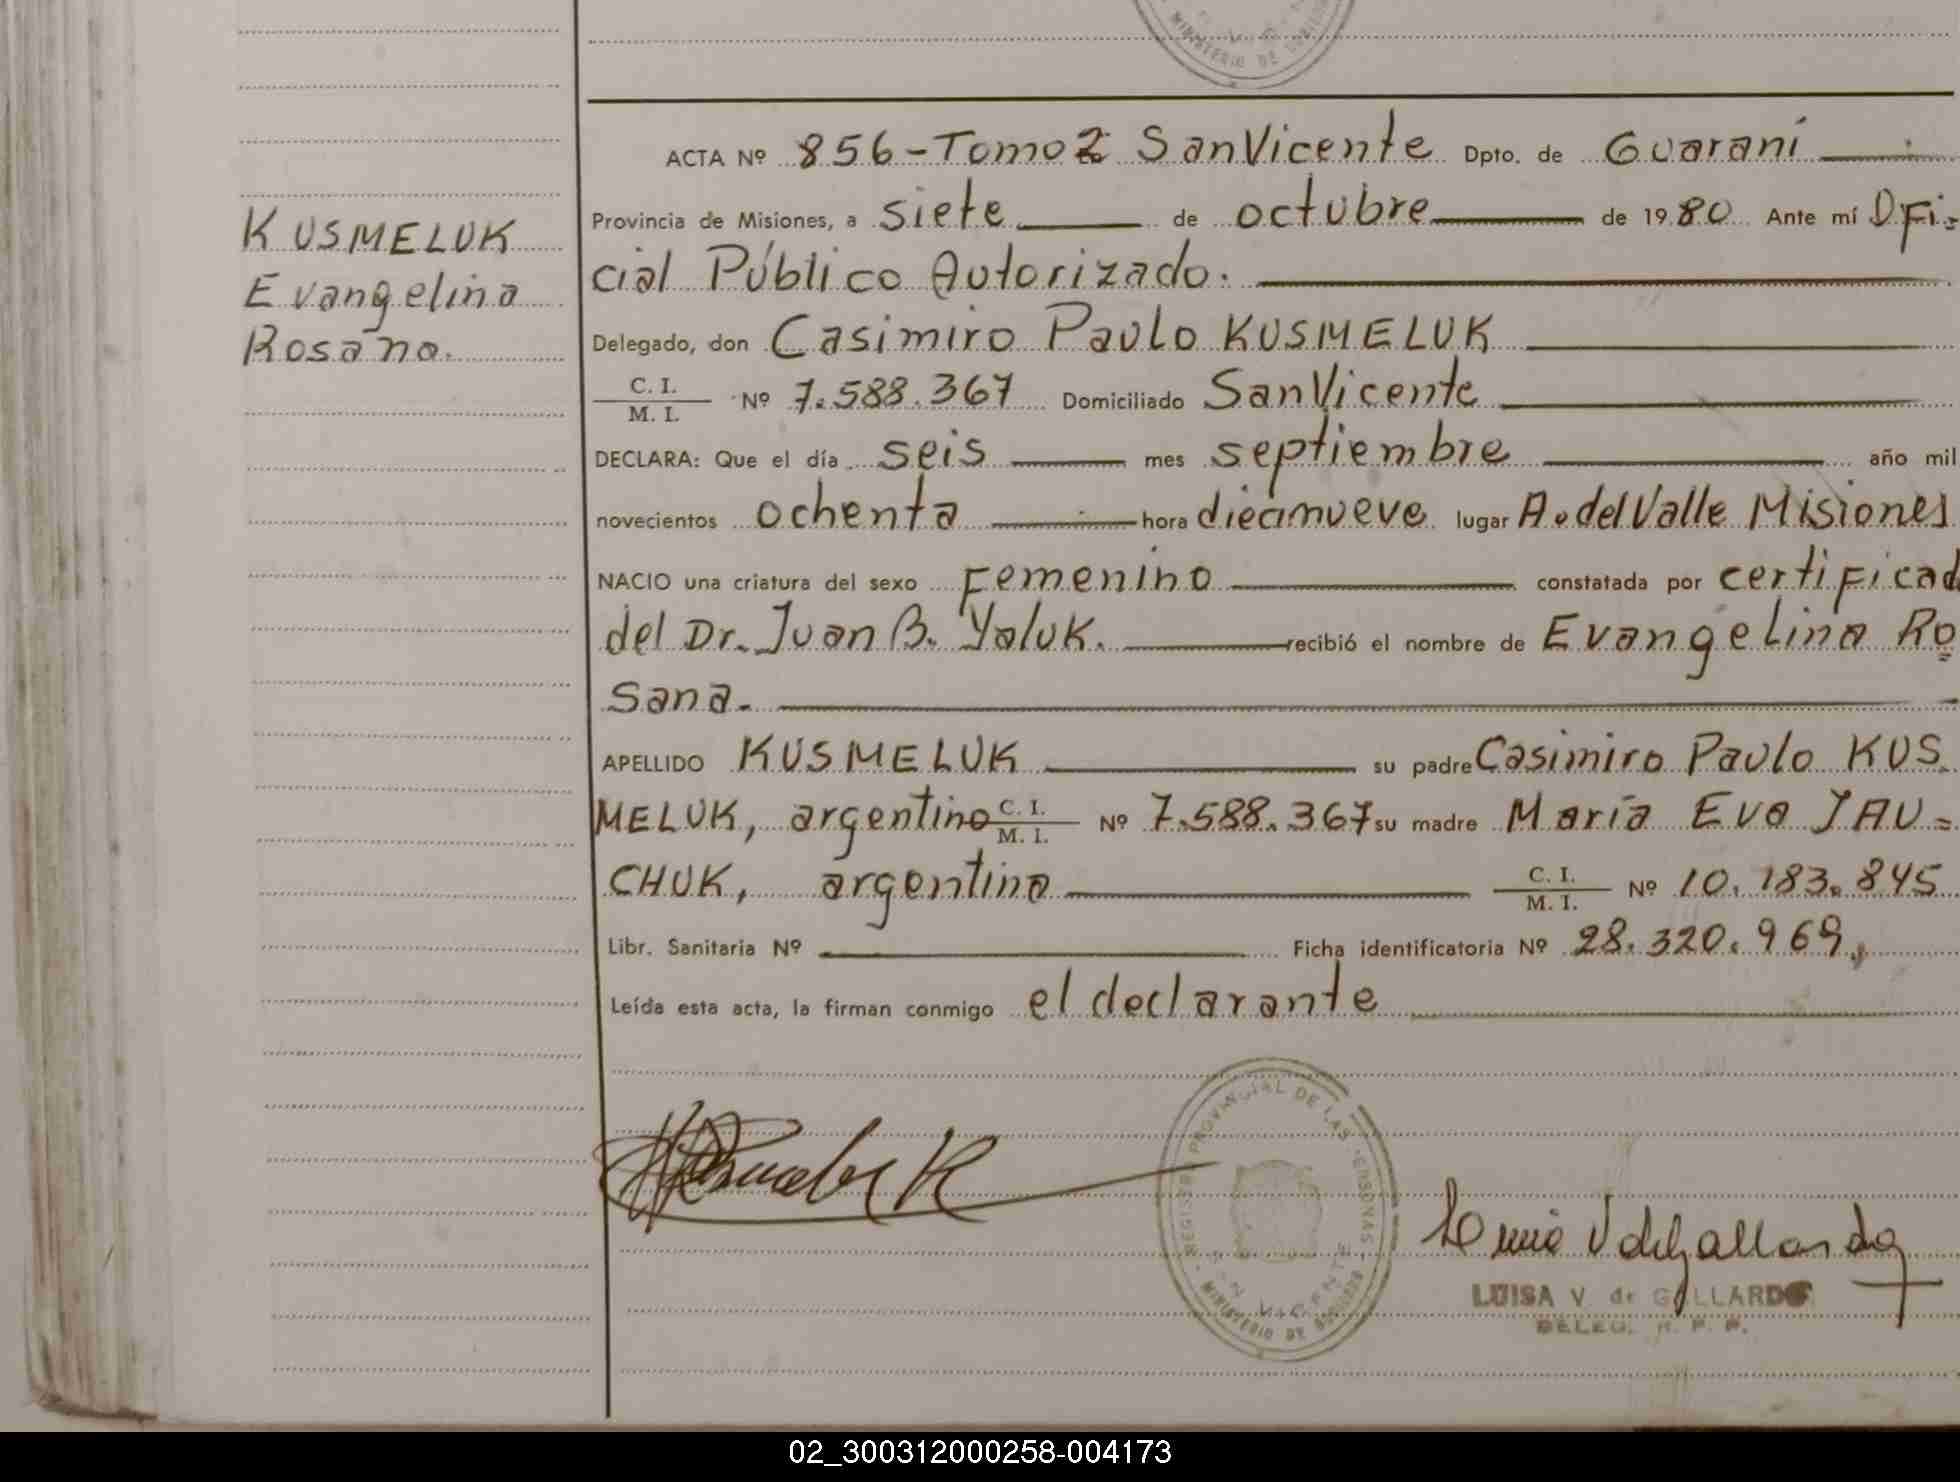 MINISTERIO DE
ACTA Nº 856-Tomo 2 San Vicente Dpto. de Guaraní
KUSMELUK
Evangelina
Rosana.
Provincia de Misiones, a siete de octubre de 1980 Ante mí Ofi=
cial Público Autorizado.
Delegado, don Casimiro Paulo KUSMELUK
C. I.
M. I. Nº 7.588.367 Domiciliado San Vicente
DECLARA: Que el día seis mes septiembre año mil
novecientos ochenta hora diecinueve lugar A. del Valle Misiones
NACIO una criatura del sexo Femenino constatada por certificad
del Dr. Juan B. Yaluk. recibió el nombre de Evangelina Ro
=
sana.
APELLIDO KUSMELUK su padre Casimiro Paulo KUS.
MELUK, argentino C. I.
M. I. Nº 7.588.367 su madre María Eva JAU=
CHUK, argentina C. I.
M. I. Nº 10.183.845
Libr. Sanitaria Nº Ficha identificatoria Nº 28.320.969,
Leída esta acta, la firman conmigo el declarante
REGISTRO PROVINCIAL DE LAS PERSONAS
SAN VICENTE
MINISTERIO DE GOBIERNO
LUISA V. de GALLARDO
DELEG. R. P. P.
02_300312000258-004173